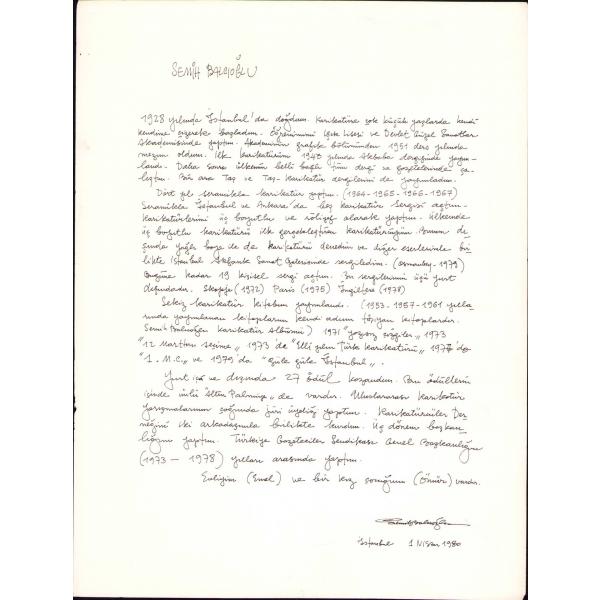 SEMİH BALCIOĞLU
1928 yılında İstanbul'da doğdum. Karikatüre çok küçük yaşlarda kendi
kendime çizerek başladım. Öğrenimimi Işık Lisesi ve Devlet Güzel Sanatlar
Akademisinde yaptım. Akademinin grafik bölümünden 1951 ders yılında
mezun oldum. İlk karikatürüm 1943 yılında Akbaba dergisinde yayın-
landı. Daha sonra ülkemin belli başlı tüm dergi ve gazetelerinde ça-
lıştım. Bir ara Taş ve Taş-Karikatür dergilerini de yayımladım.
Dört yıl seramikle karikatür yaptım. (1964-1965-1966-1967)
Seramikle İstanbul ve Ankara'da beş karikatür sergisi açtım.
Karikatürlerimi üç boyutlu ve rölyef olarak yaptım. Ülkemde
üç boyutlu karikatürü ilk gerçekleştiren karikatürcüyüm. Bunun dı-
şında yağlı boya ile de karikatürü denedim ve diğer eserlerimle bir-
likte İstanbul Akbank Sanat Galerisinde sergiledim. (Osmanbey-1979)
Bugüne kadar 19 kişisel sergi açtım. Bu sergilerimin üçü yurt
dışındadır. Skopje (1972) Paris (1975) İngiltere (1978)
Sekiz karikatür kitabım yayımlandı. (1953-1957-1961 yılla-
rında yayımlanan kitaplarım kendi adımı taşıyan kitaplardır.
Semih Balcıoğlu Karikatür Albümü) 1971 "Yazısız Çizgiler" 1973
"12 Marttan Seçime" 1973'de "Elli yılın Türk Karikatürü" da
"1. M.C." ve 1979'da "Güle güle İstanbul".
Yurt içi ve dışında 27 ödül kazandım. Bu ödüllerin
içinde ünlü "Altın Palmiye" de vardır. Uluslararası Karikatür
Yarışmalarının çoğunda jüri üyeliği yaptım. Karikatürcüler Der-
neğini iki arkadaşımla birlikte kurdum. Üç dönem başkan-
lığını yaptım. Türkiye Gazeteciler Sendikası Genel Başkanlığını
(1973 — 1978) yılları arasında yaptım.
Evliyim (Emel) ve bir kız çocuğum (Ömür) vardır.
İstanbul 1 Nisan 1980